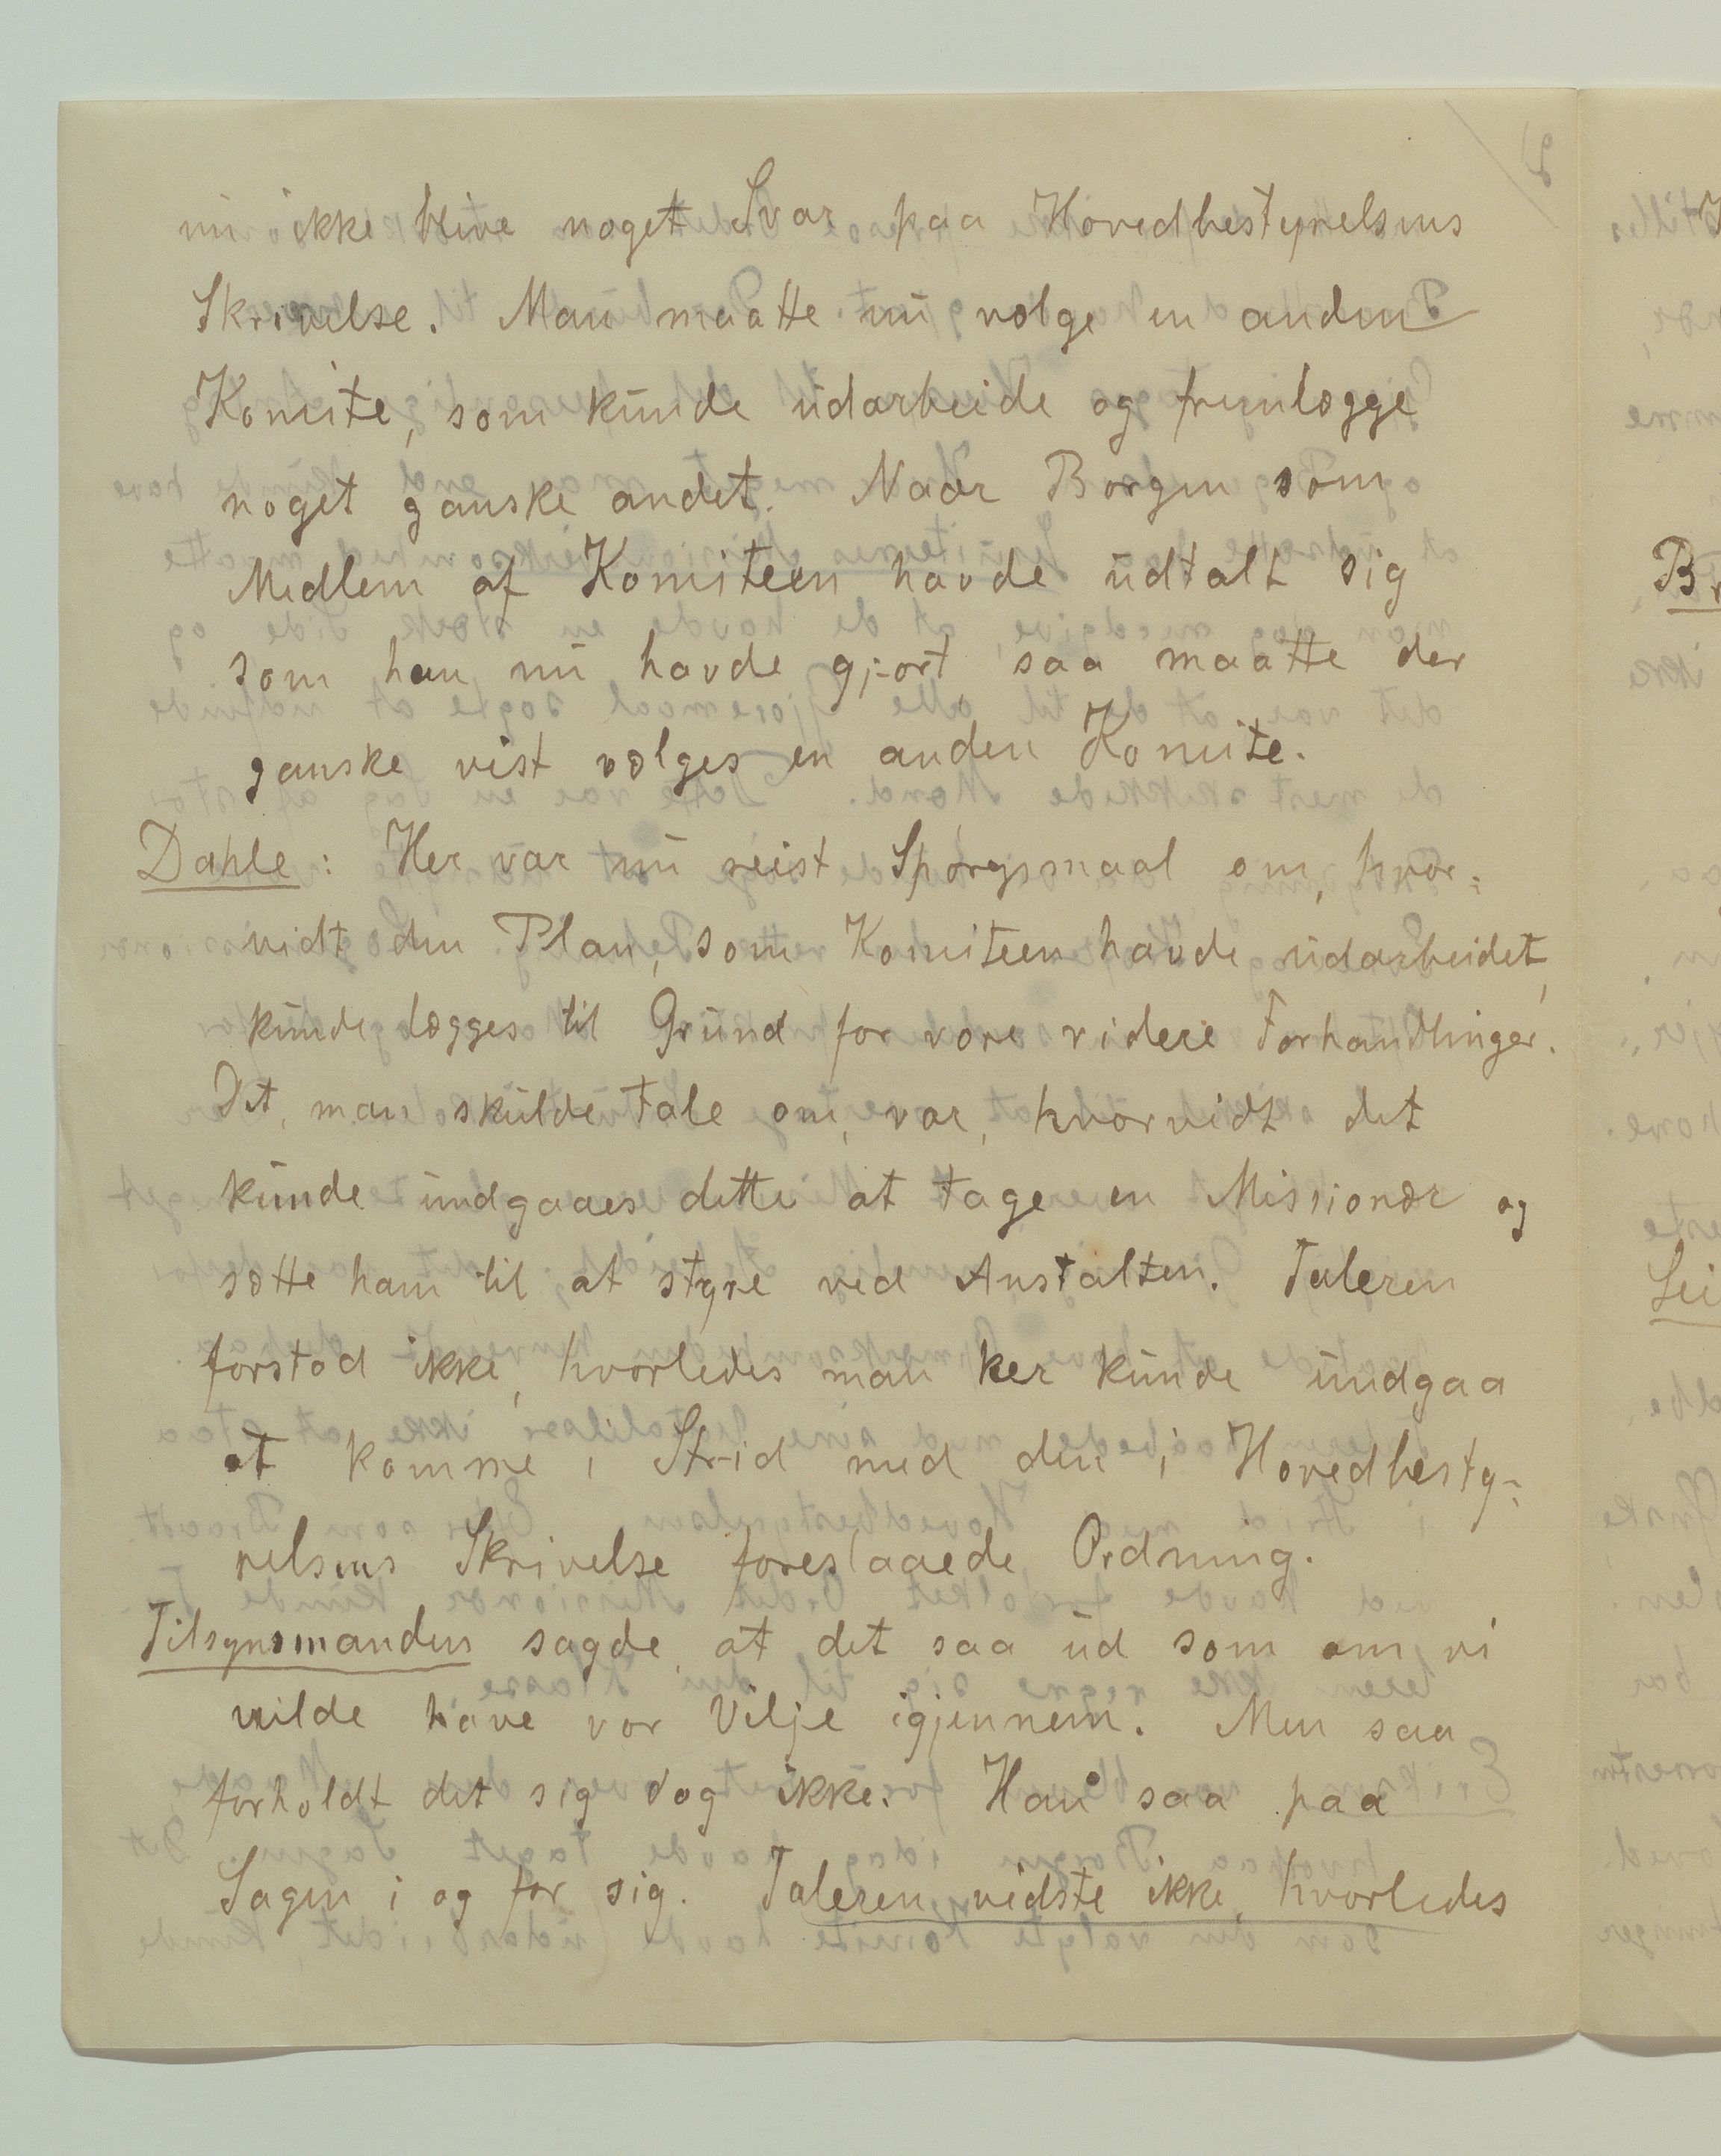 nu ikke blive noget Svar paa Hovedbestyrelsens
Skrivelse. Man maatte nu vælge en anden
Komite, som kunde udarbeide og fremlægge
noget ganske andet. Naar Borgen som
Medlem af Komiteen havde udtalt sig
som han nu havde gjort saa maatte der
ganske vist vælges en anden Komite.
Dahle: Her var nu reist Spørgsmaal om, hvor-
vidt den Plan, som Komiteen havde udarbeidet,
kunde lægges til Grund for vore videre Forhandlinger.
Det, man skulde tale om, var, hvorvidt det
kunde undgaaes dette at tage en Missionær og
sætte ham til at styre ved Anstalten. Taleren
forstod ikke, hvorledes man her kunde undgaa
at komme i Strid med den i Hovedbesty-
relsens Skrivelse foreslaaede Ordning.
Tilsynsmanden sagde, at det saa ud som om vi
vilde have vor Vilje igjennem. Men saa
forholdt det sig dog ikke. Han saa paa
Sagen i og for sig. Taleren vidste ikke, hvorledes
Br
Lei